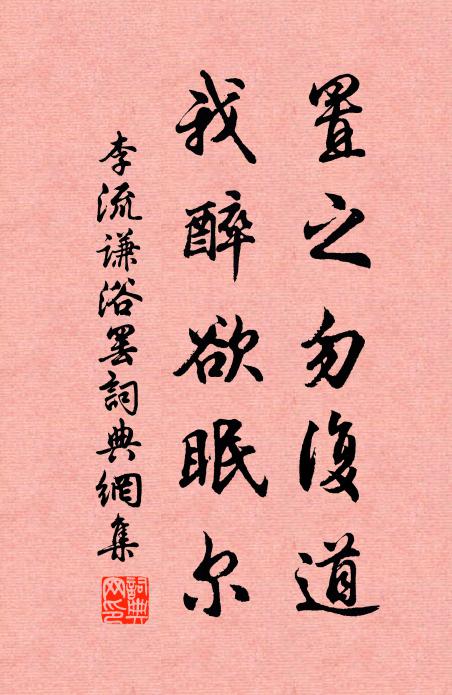 置之勿復道
我醉欲眠尔
李流謙浴罢詞典網集
詞典网印